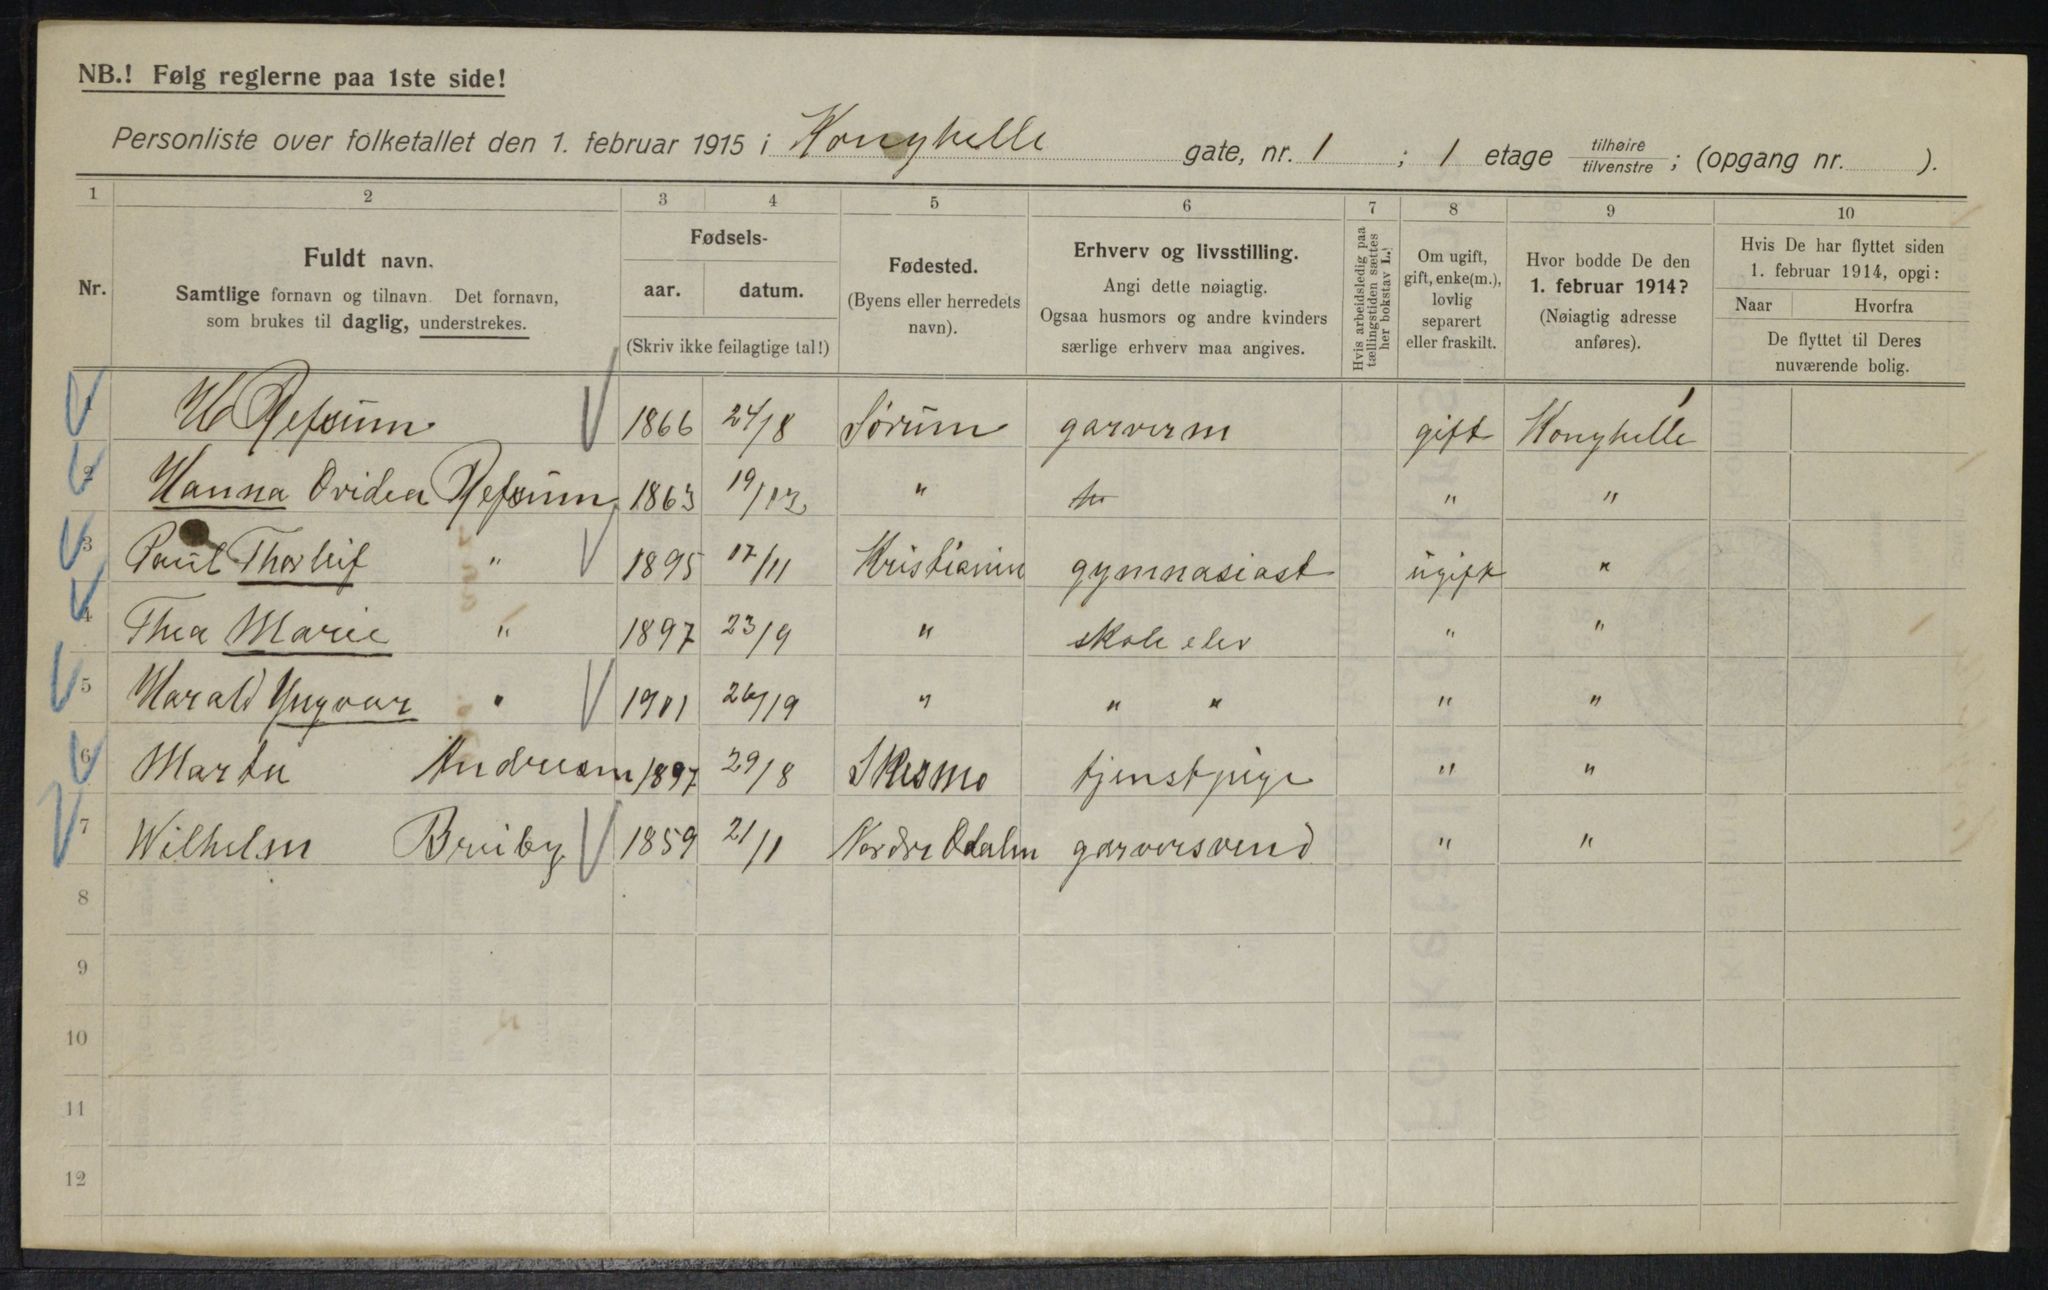 NB.! Følg reglerne paa 1ste side!
Personliste over folketallet den 1. februar 1915 i Konghelle gate, nr. 1 ; 1 etage tilhøire / tilvenstre ; (opgang nr. ).
1 2 3 4 5 6 7 8 9 10
Nr.
Fuldt navn.
Samtlige fornavn og tilnavn. Det fornavn,
som brukes til daglig, understrekes.
Fødsels-
aar. datum.
(Skriv ikke feilagtige tal!)
Fødested.
(Byens eller herredets
navn).
Erhverv og livsstilling.
Angi dette nøiagtig.
Ogsaa husmors og andre kvinders
særlige erhverv maa angives.
Hvis arbeidsledig paa
tællingstiden sættes
her bokstav L.
Om ugift,
gift, enke(m.),
lovlig
separert
eller fraskilt.
Hvor bodde De den
1. februar 1914?
(Nøiagtig adresse
anføres).
Hvis De har flyttet siden
1. februar 1914, opgi:
Naar Hvorfra
De flyttet til Deres
nuværende bolig.
1 H Refsum 1866 24/8 Sørum garverm gift Konghelle 1
2 Hanna Ovidea Refsum 1863 19/12 " " "
3 Paul Thorleif " 1895 17/11 Kristiania gymnasiast ugift "
4 Thea Marie " 1897 23/9 " skole elev " "
5 Harald Yngvar " 1901 26/9 " " " " "
6 Marta Andresen 1897 29/8 Skesmo tjenstpige " "
7 Wilhelm Bruby 1859 21/1 Nordre Odalen garversvend " "
8
9
10
11
12